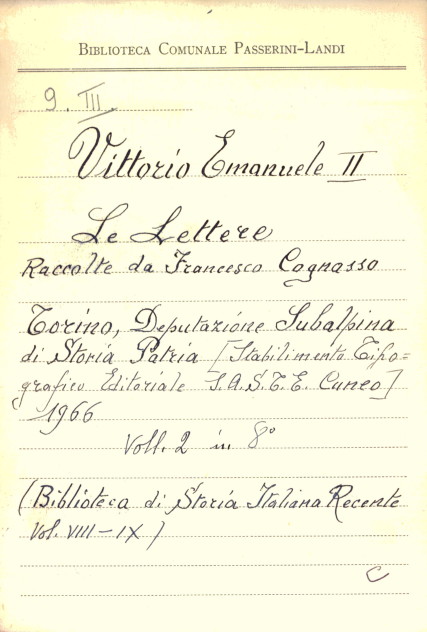 BIBLIOTECA COMUNALE PASSERINI-LANDI
9. III.
Vittorio Emanuele II
Le Lettere
Raccolte da Francesco Cognasso
Torino, Deputazione Subalpina
di Storia Patria [Stabilimento Tipo=
grafico Editoriale S.A.S.T.E. Cuneo]
1966
Voll. 2 in 8°
(Biblioteca di Storia Italiana Recente
Vol. VIII-IX)
C